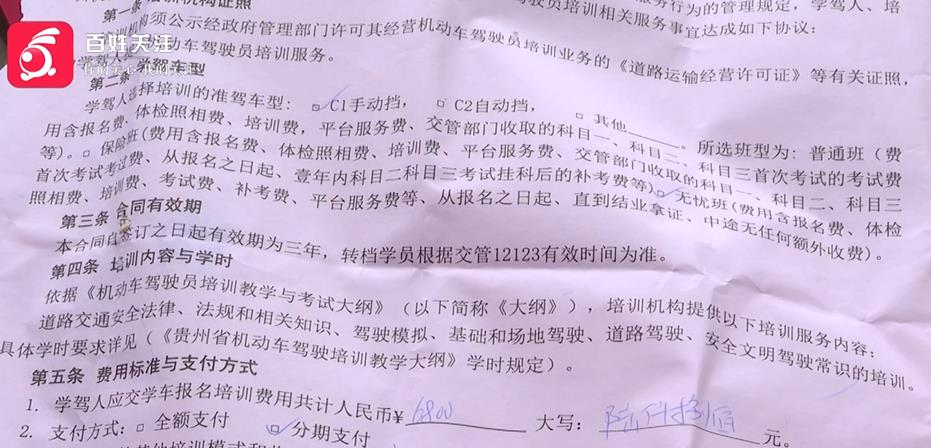 第一条 培训机构证照
行为的管理规定，学驾人、培
驾驶员培训相关服务事宜达成如下协议：
机构须公示经政府管理部门许可其经营机动车驾驶员培训业务的《道路运输经营许可证》等有关证照，
动车驾驶员培训服务。
百姓关注
第二条 学驾车型
学驾人选择培训的准驾车型：□ C1手动挡， □ C2自动挡， □ 其他______。所选班型为：普通班（费
用含报名费、体检照相费、培训费，平台服务费、交管部门收取的科目一、科目二、科目三首次考试的考试费
等）。□ 保险班(费用含报名费、体检照相费、培训费、平台服务费、交管部门收取的科目一、科目二、科目三
首次考试考试费、从报名之日起、壹年内科目二科目三考试挂科后的补考费等)□ 无忧班(费用含报名费、体检
照相费、培训费、考试费、补考费、平台服务费等、从报名之日起、直到结业拿证、中途无任何额外收费)。
第三条 合同有效期
本合同自签订之日起有效期为三年，转档学员根据交管12123有效时间为准。
第四条 培训内容与学时
依据《机动车驾驶员培训教学与考试大纲》（以下简称《大纲》），培训机构提供以下培训服务内容：
道路交通安全法律、法规和相关知识、驾驶模拟、基础和场地驾驶、道路驾驶、安全文明驾驶常识的培训。
具体学时要求详见（《贵州省机动车驾驶培训教学大纲》学时规定）。
第五条 费用标准与支付方式
1. 学驾人应交学车报名培训费用共计人民币¥ 6800 大写： 元。
2. 支付方式：□ 全额支付 □ 分期支付